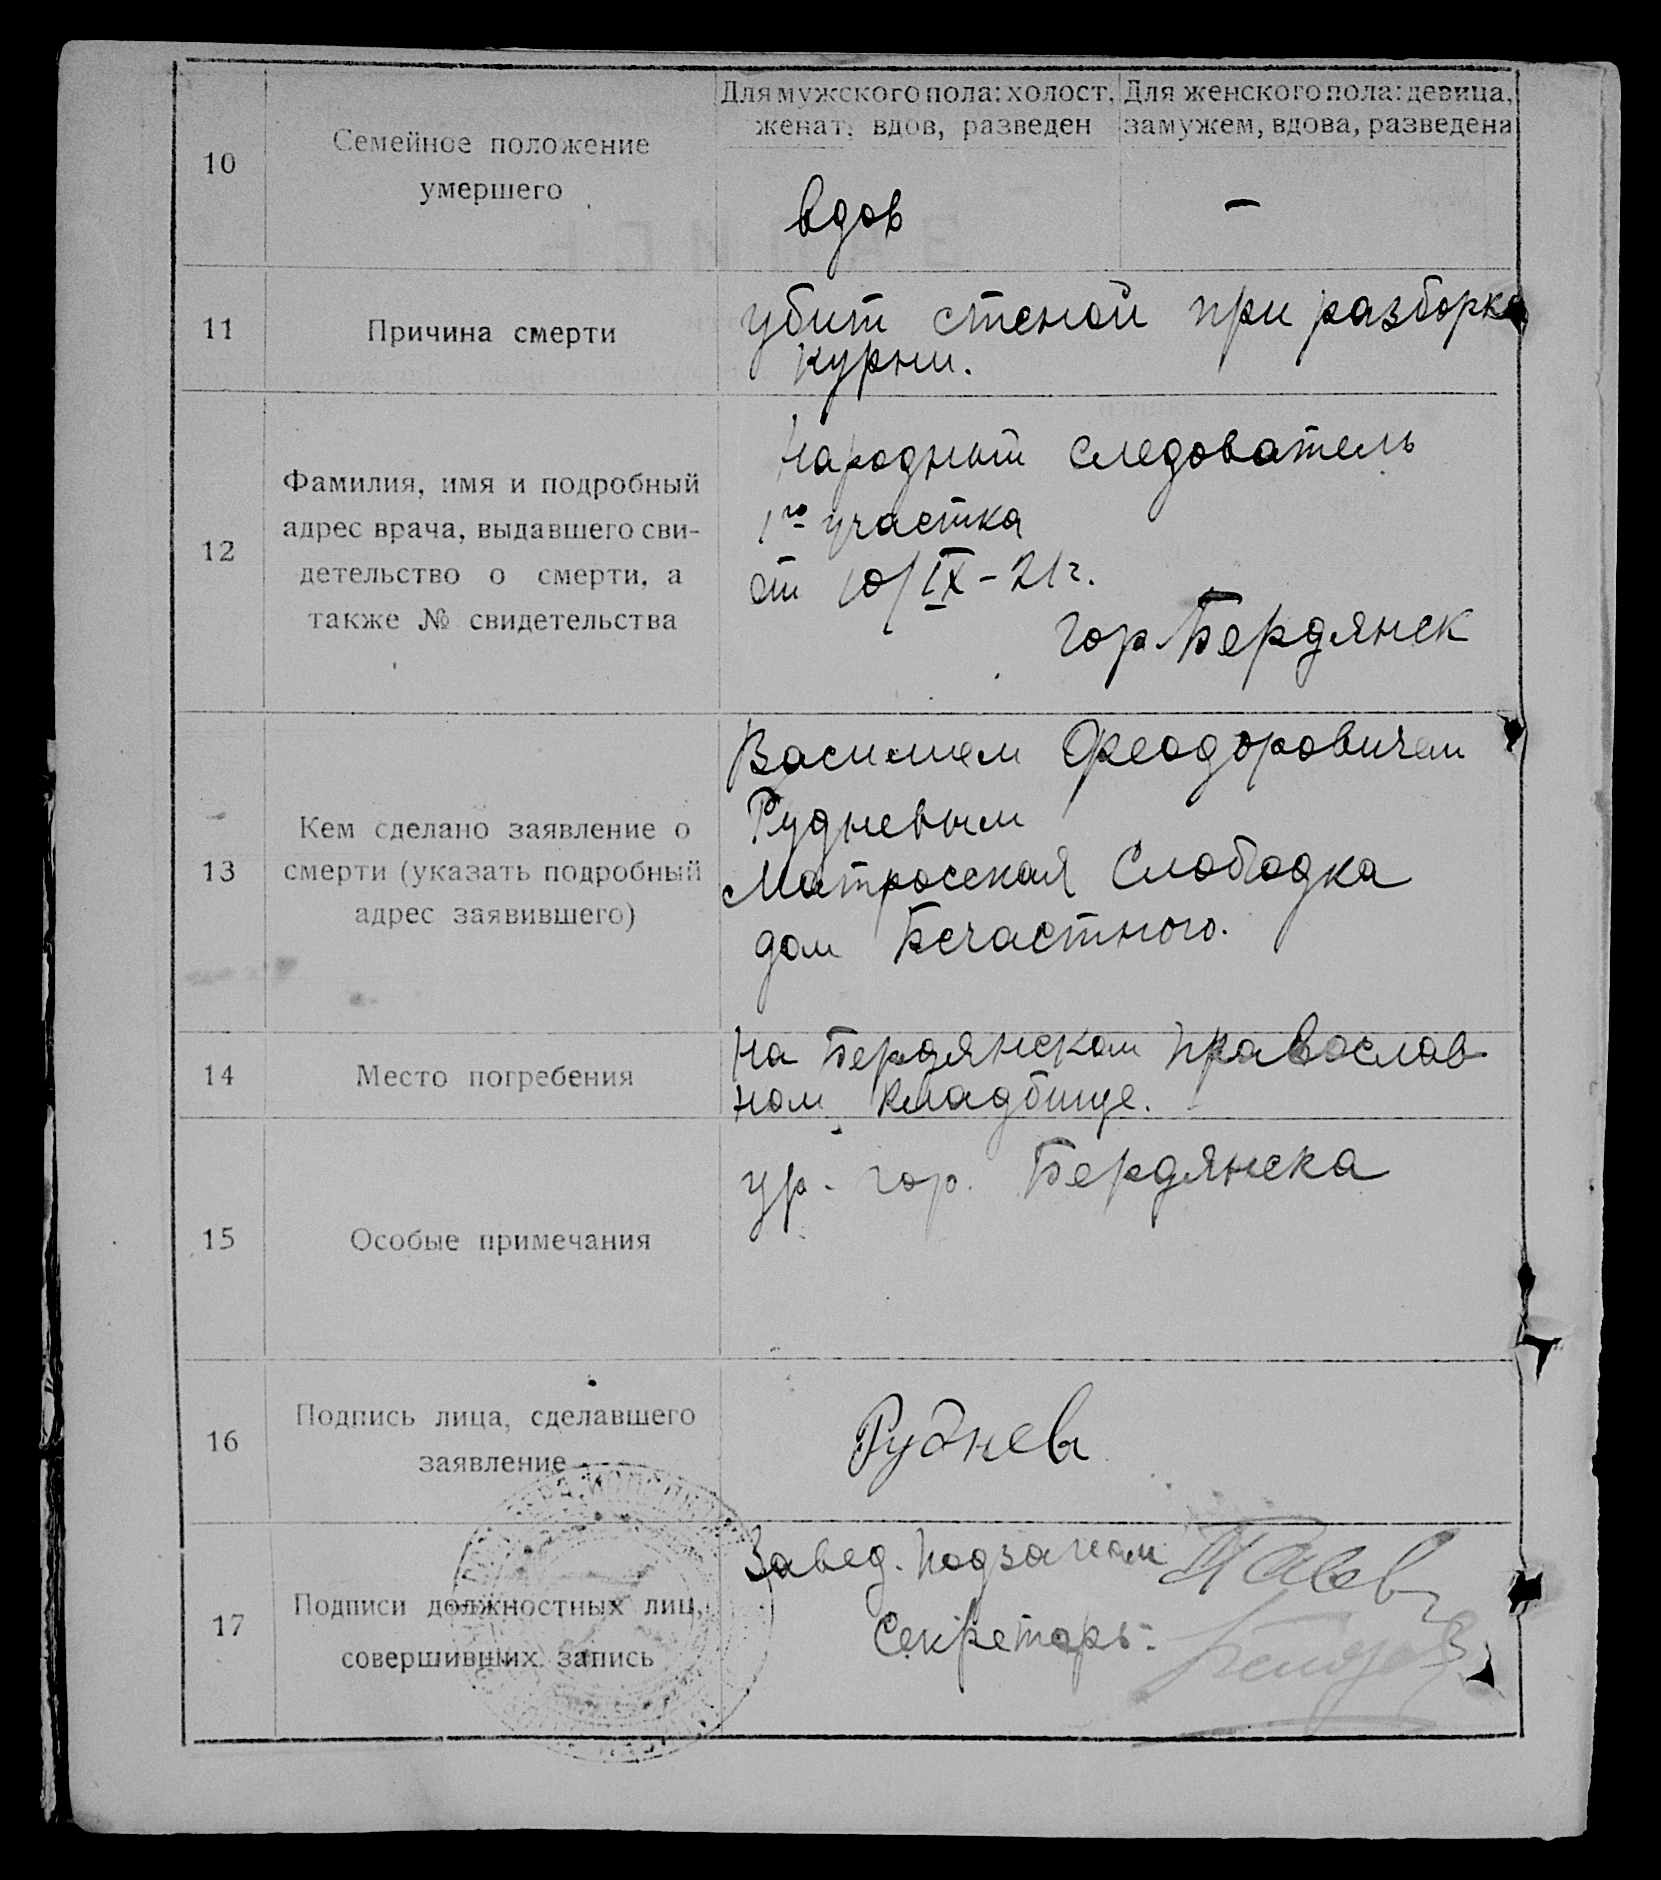 Для мужского пола: холост, женат, вдов, разведен
Для женского пола: девица, замужем, вдова, разведена
10
Семейное положение
умершего
вдов
–
11
Причина смерти
убит стеной при разборке
курни.
12
Фамилия, имя и подробный
адрес врача, выдавшего сви-
детельство о смерти, а
также № свидетельства
Народный следователь
1го участка
от 10/IX – 21 г.
гор. Бердянск
13
Кем сделано заявление о
смерти (указать подробный
адрес заявившего)
Василием Феодоровичем
Рудневым
Матросская Слободка
дом Бечастного.
14
Место погребения
На Бердянском православ
ном кладбище.
15
Особые примечания
ур. гор. Бердянска
16
Подпись лица, сделавшего
заявление
Руднев
17
Подписи должностных лиц,
совершивших запись
Завед. подзагсом
Секретарь